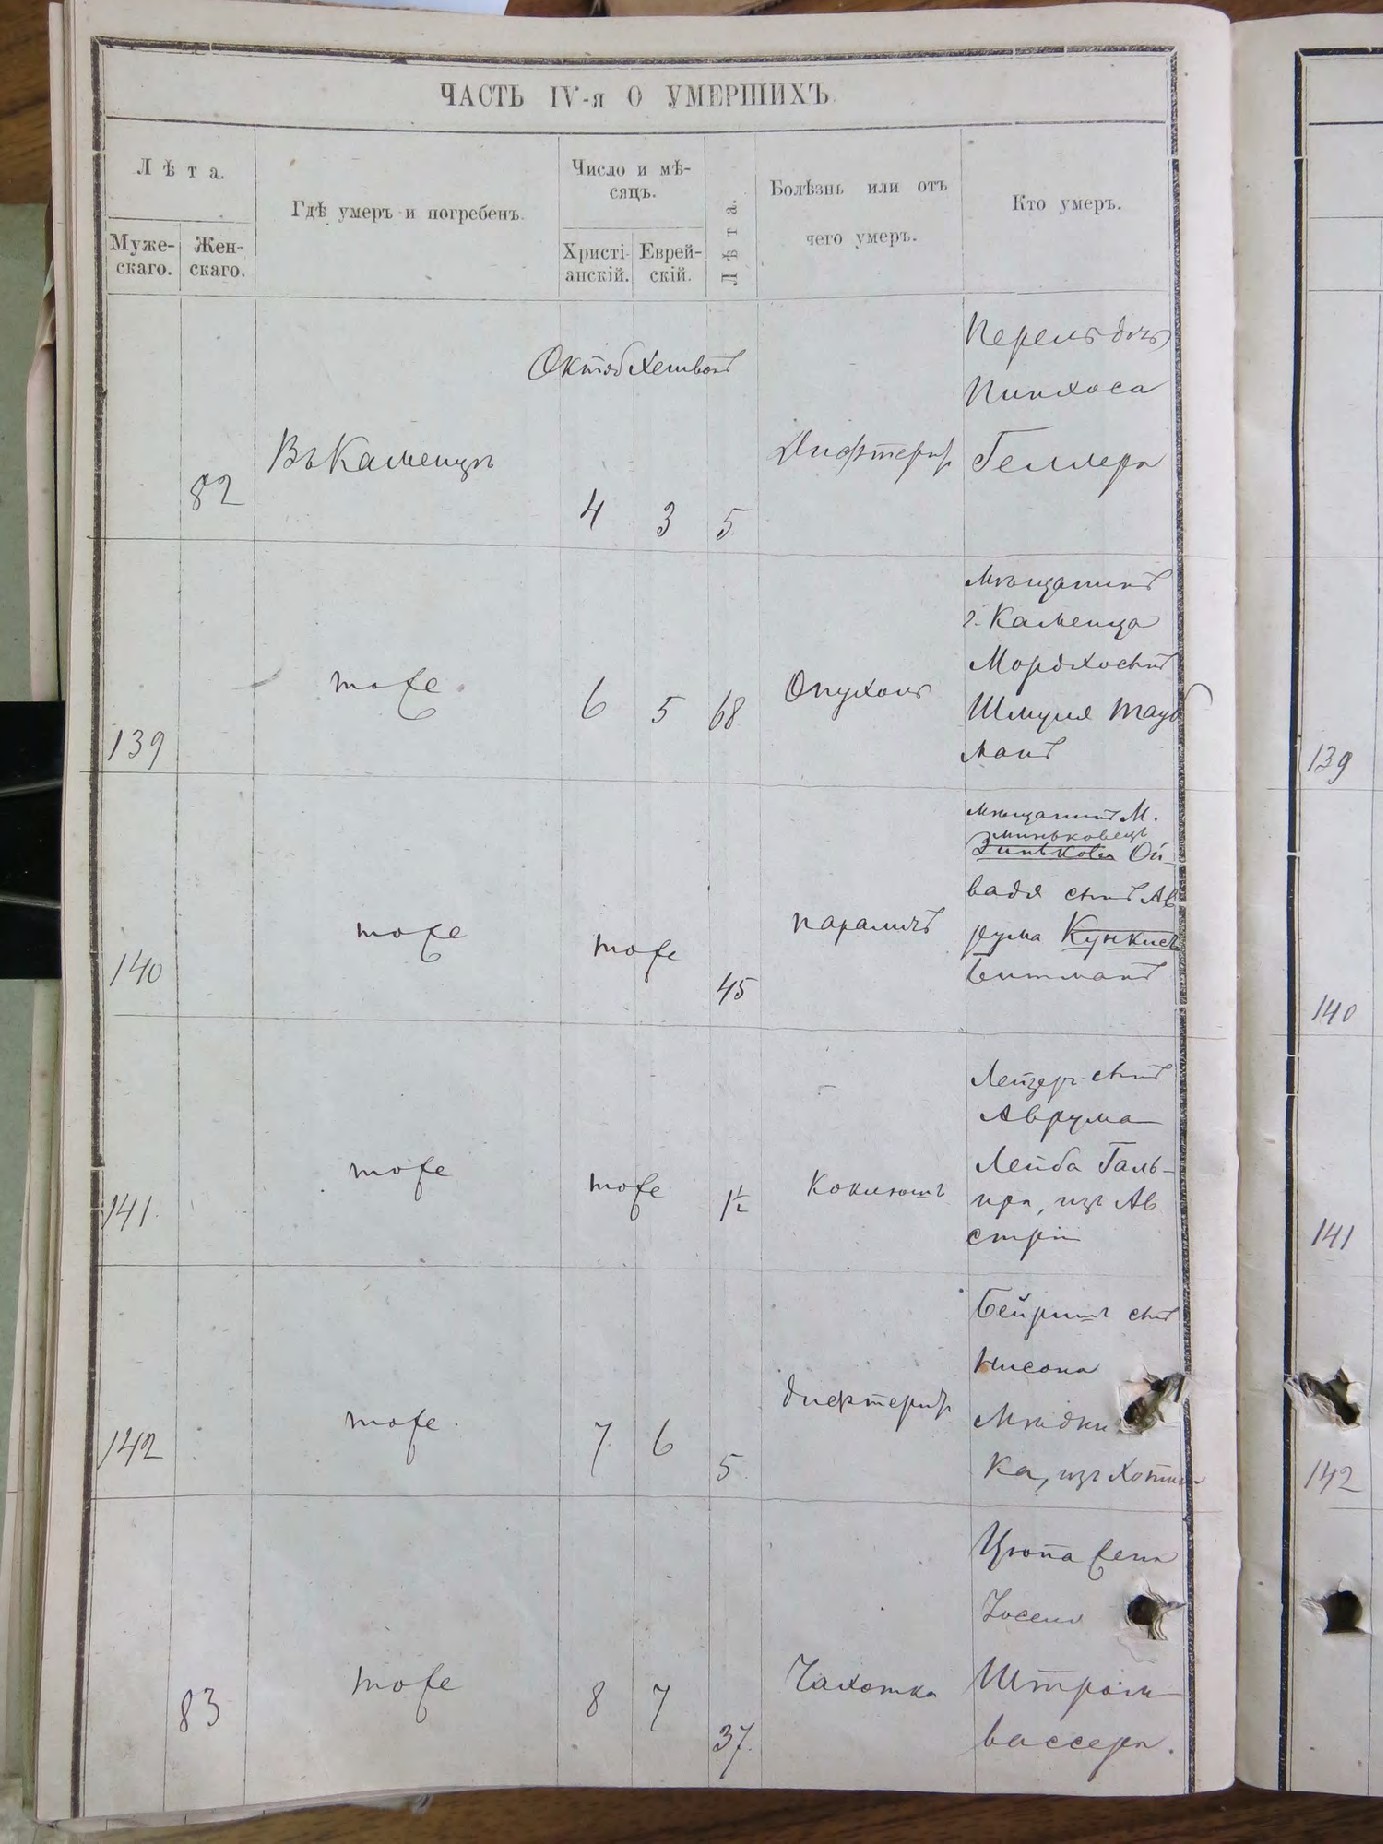 ЧАСТЬ IV-я О УМЕРШИХЪ.
Лѣта.
Муже-
скаго.
Жен-
скаго.
Гдѣ умеръ и погребенъ.
Число и мѣ-
сяцъ.
Христі-
анскій.
Еврей-
скій.
Лѣта.
Болѣзнь или отъ
чего умеръ.
Кто умеръ.
82
Въ Каменцѣ
Октоб Хешвонъ
4 3 5
Дифтеритъ
Перель дочь
Пинхоса
Геллера
139
тоже
6 5 68
Опухоль
Мѣщанинъ
г. Каменца
Мордхо сынъ
Шмуля Тауб
манъ
140
тоже
тоже
45
параличъ
Мѣщанинъ М.
Миньковецъ
Ой-
вадя сынъ Ав
рума
Битманъ
141
тоже
тоже
1½
Коклюшъ
Лейзеръ сынъ
Аврума
Лейба Галь-
пра, изъ Ав
стріи
142
тоже
7 6 5
дифтеритъ
Бейришъ сынъ
Нисона
ка, изъ Хотина
83
тоже
8 7 37
Чахотка
жена
Іосея
Штром-
вассера.
139
140
141
142